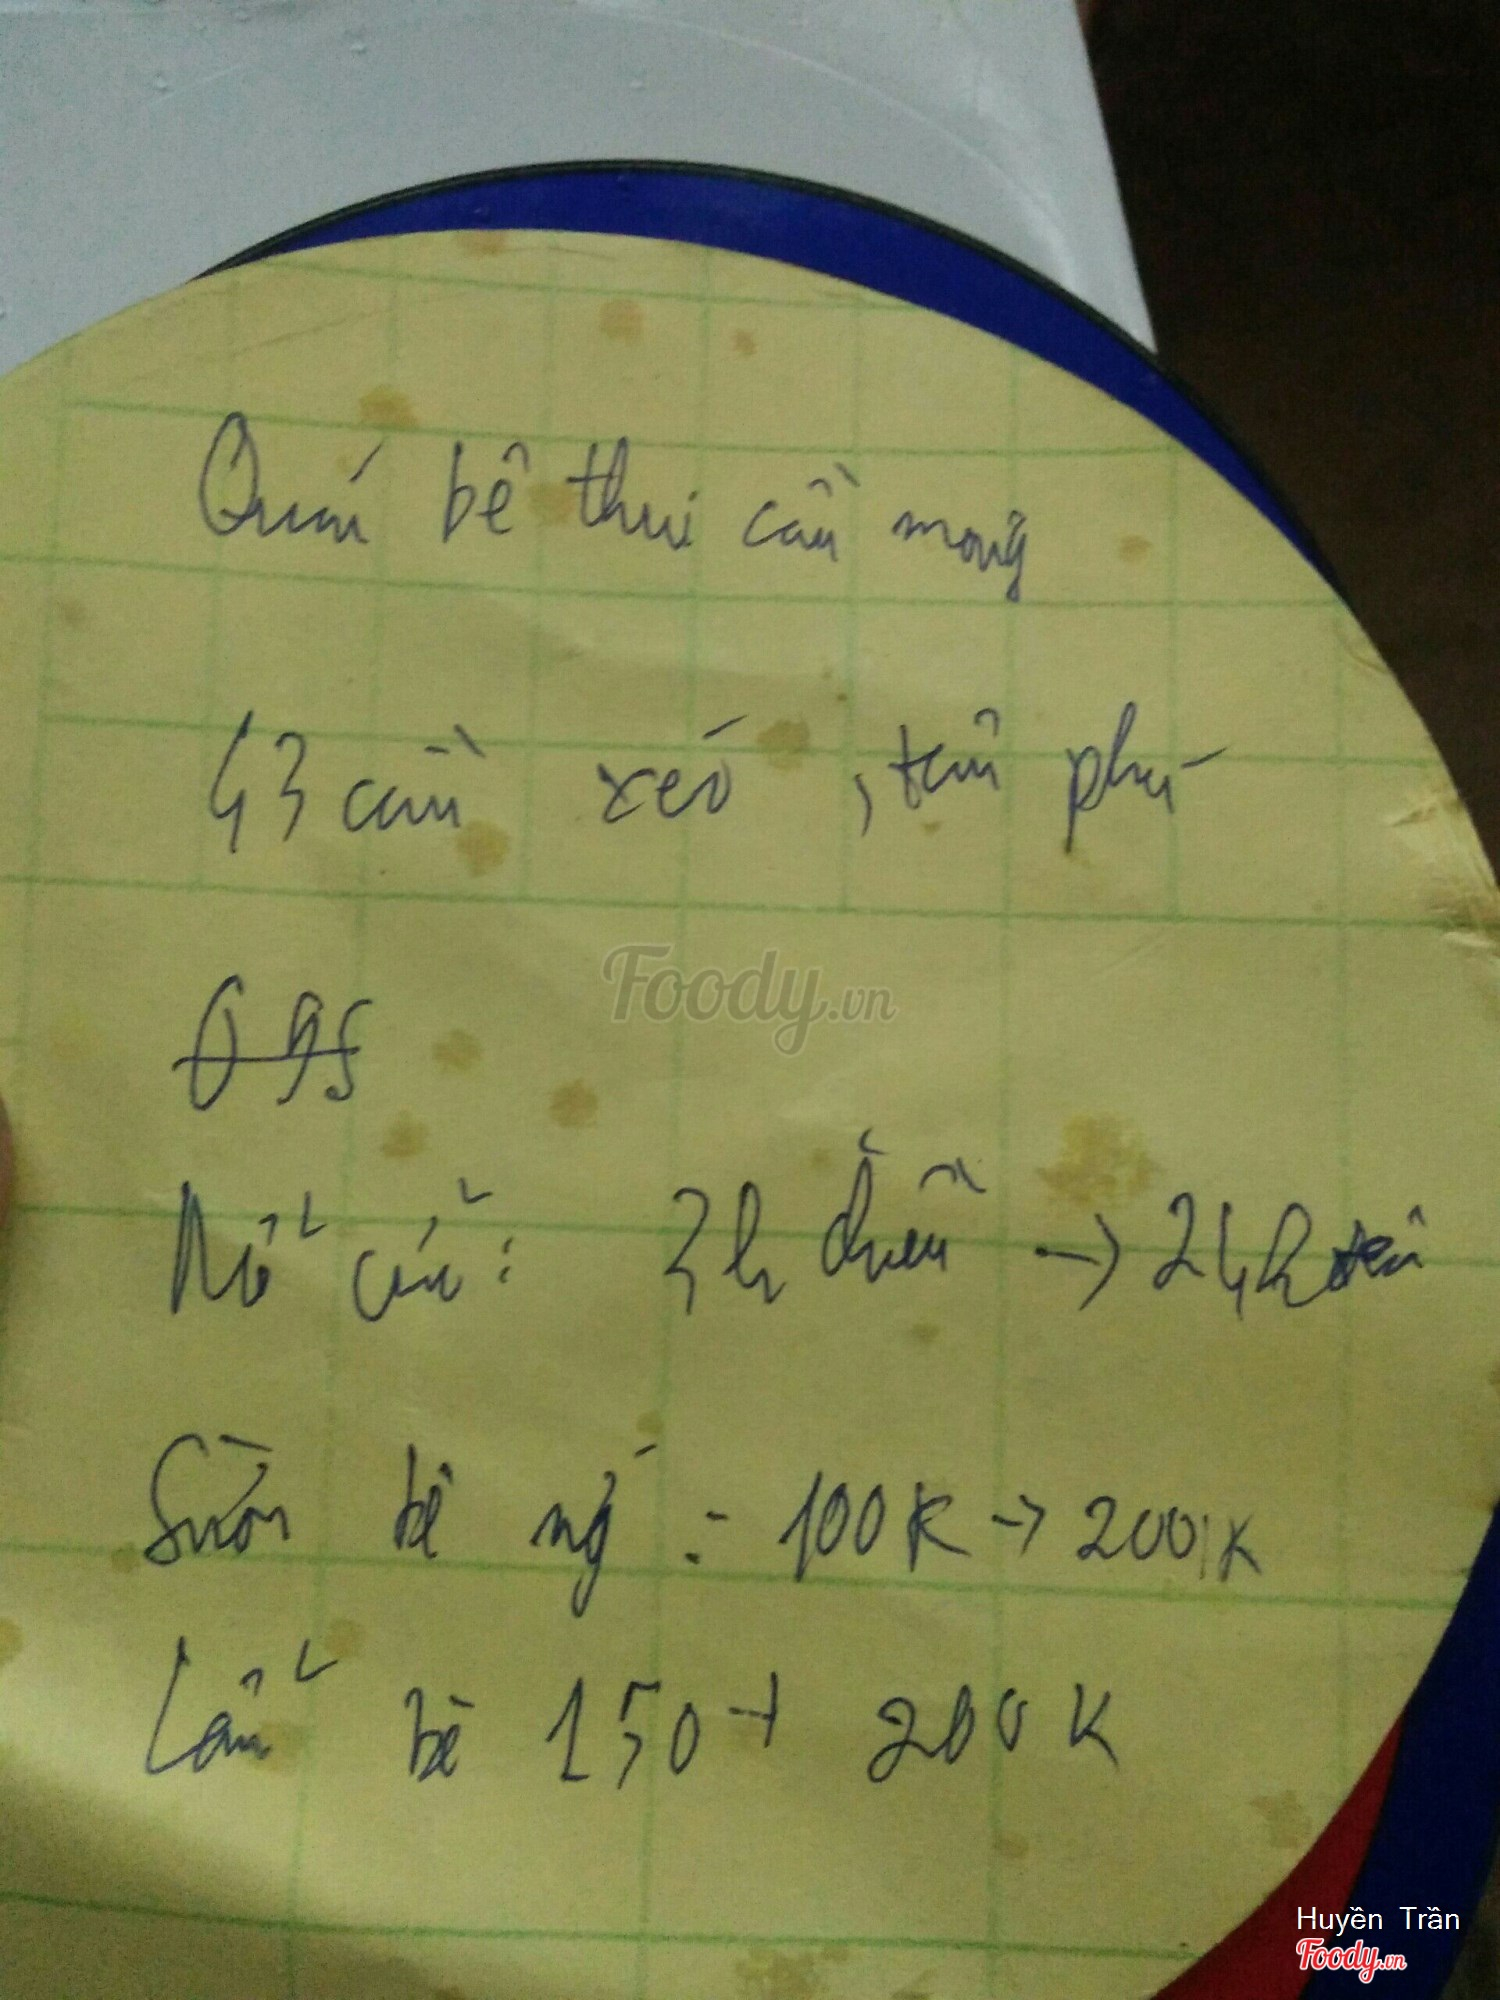 Quán bê thui cầu mong
43 cầu xéo, tân phú
Foody.vn
095
Mở cửa: 3h chiều → 24h đêm
Sườn bê ng : 100K → 200K
Lẩu bê 150 → 200K
Huyền Trần
Foody.vn